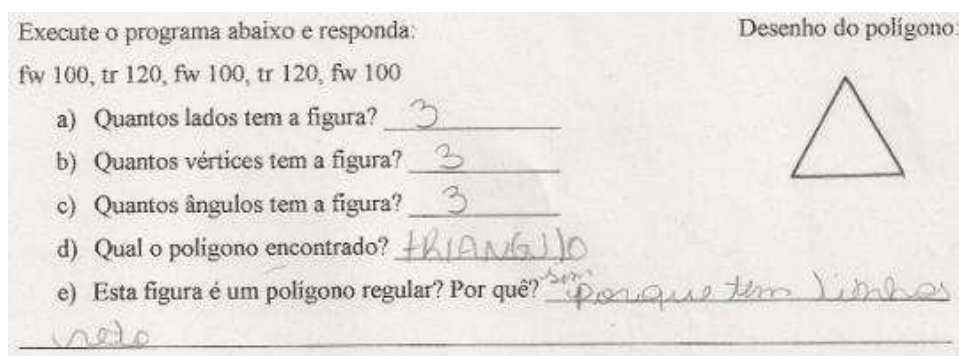 Execute o programa abaixo e responda:
Desenho do polígono:
fw 100, tr 120, fw 100, tr 120, fw 100
a) Quantos lados tem a figura? 3
b) Quantos vértices tem a figura? 3
c) Quantos ângulos tem a figura? 3
d) Qual o polígono encontrado? tRIANGUlO
e) Esta figura é um polígono regular? Por quê? sim porque tem linhas
reto